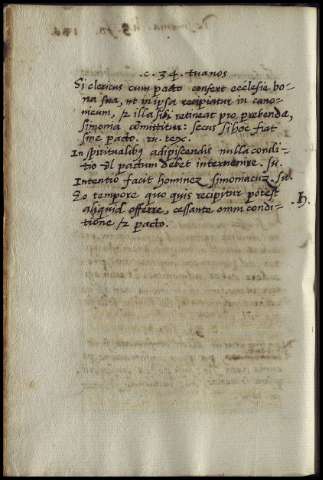 .c. 34. tuanos
Si clericus cum pacto confert ecclesie bo=
na sua, ut in ipsa recipiatur in cano=
nicum, & illa sibi retineat pro prebenda,
simonia committitur: secus si hoc fiat
sine pacto.
In spiritualibus adipiscendis nulla condi=
tio vel pactum debet intervenire. su.
Intentio facit hominem simoniacum.
Eo tempore quo quis recipitur potest
aliquid offerre, cessante omni condi=
tione & pacto.